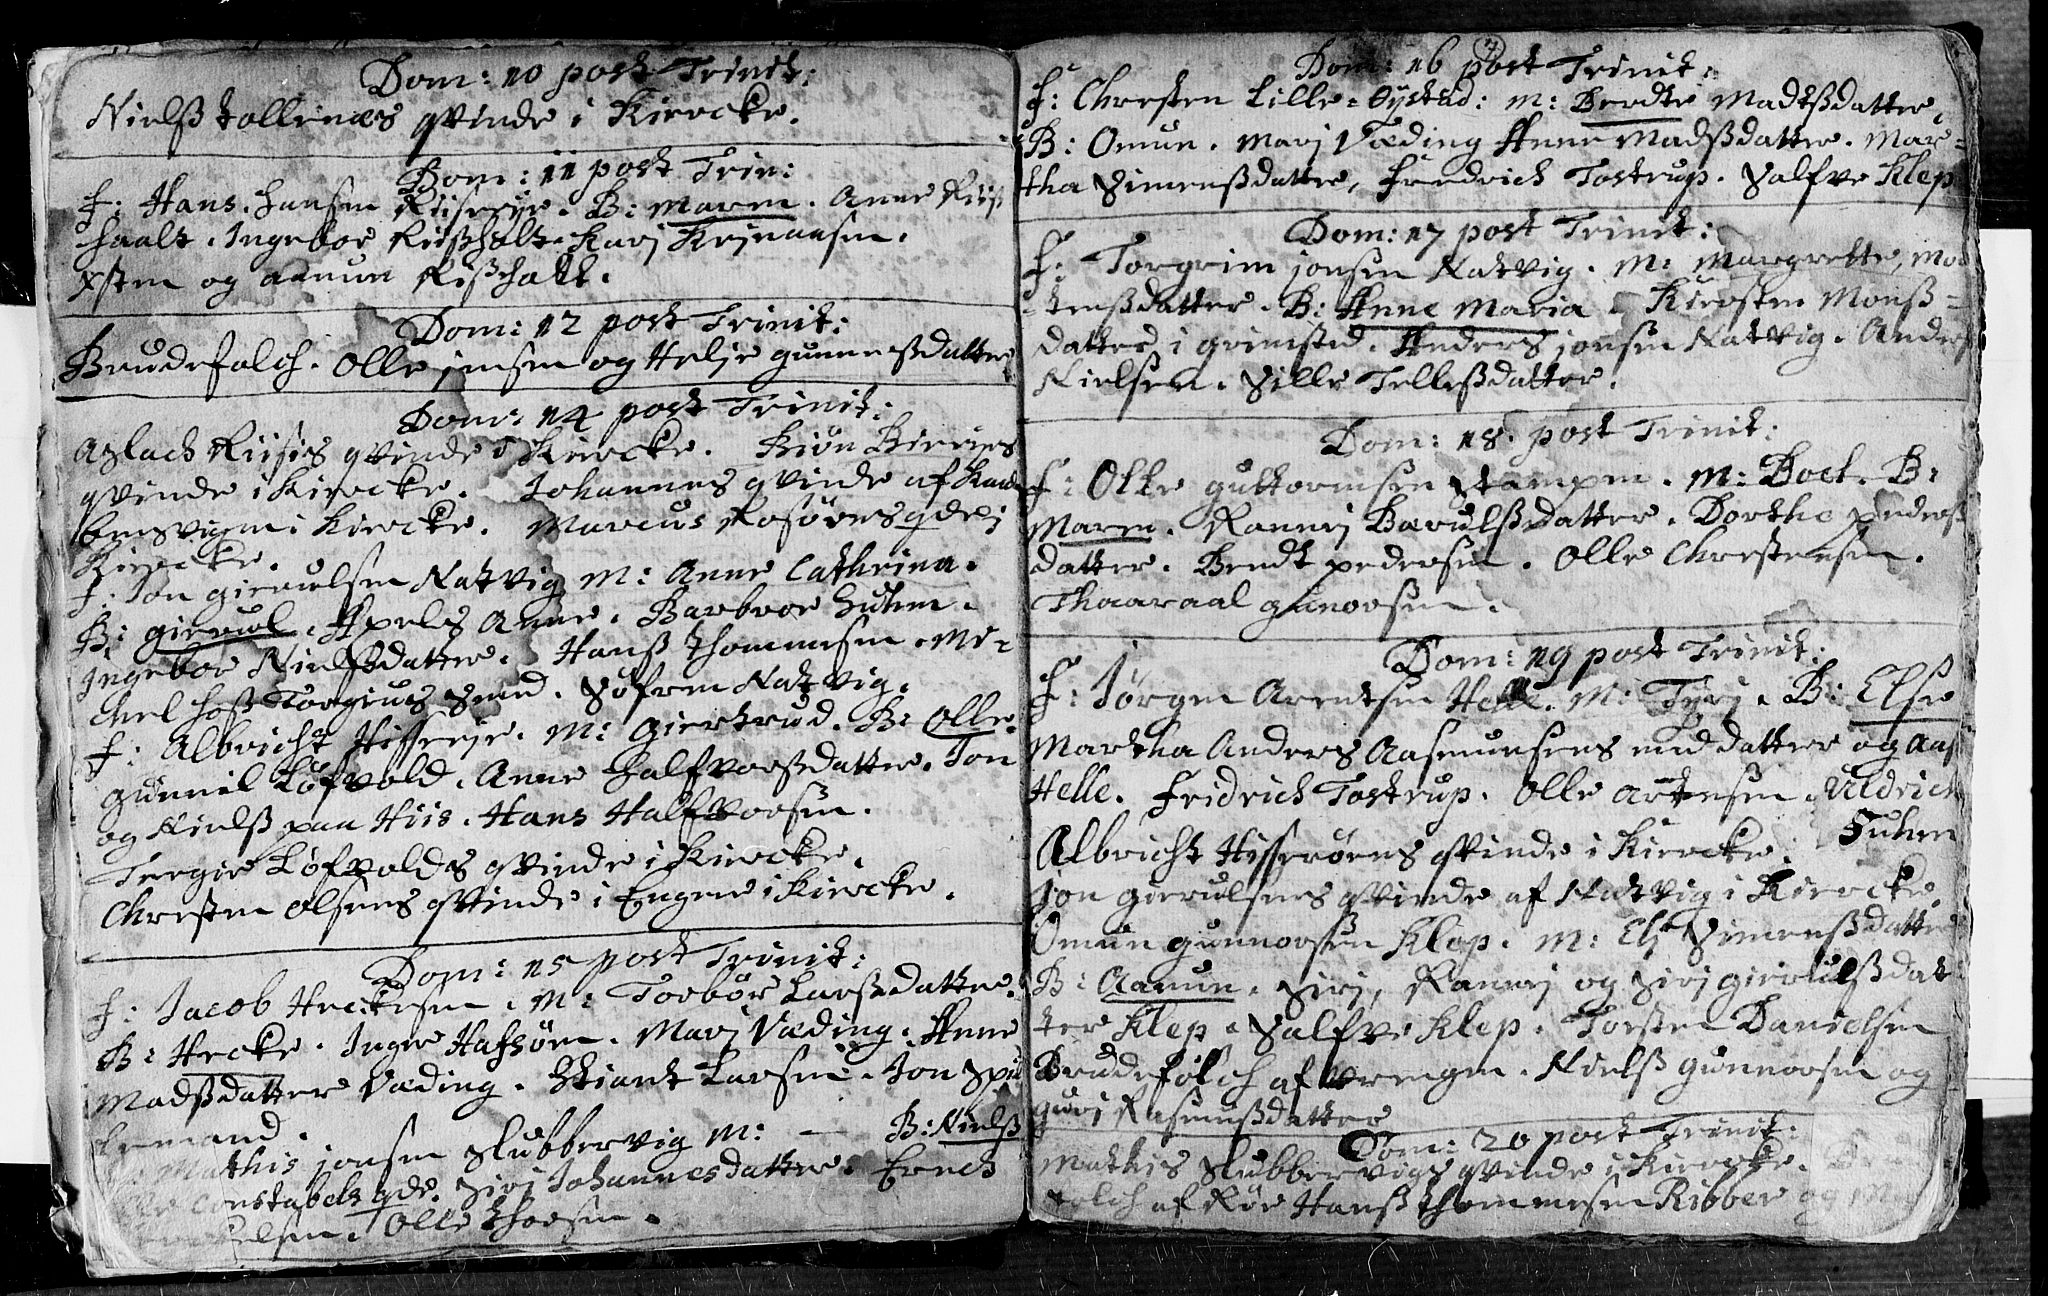 Dom: 10 post Trinit:
Nielß kallenæs qvinde i Kircke.
Dom: 11 post Trin:
F: Hans. hansen Riiserje. B: Maren. Anne Riis
haalt. Ingebor Riißholt. Karj
og aamun Rißholt.
Dom: 12 post Trinit:
Brudefolch. Olle jensen og Helje gunneßdatter
Dom: 14 post Trinit:
Aßlach Riisis qvinde i Kircke. Biøn
qvinde i Kircke. Johannes qvinde af
i Kircke. Marcus Rosørens qde i
Kircke.
F: Jon gierulsen Natvig M: Anne Cathrina.
B: gierul. Apels Anne. Barbror Suhm.
Ingebor Nielsdatter. Hanß thommesen. Mi-
chel hoß Torgiuß Smed. Søfren Natvig.
F: Albricht Hisserje. M: giertrud. B: Olle.
gunnil Løfvold. Anne Halfvorßdatter. Jon
og Nielß paa Hiis. Hans Halfvorsen.
Tergie Løfvolds qvinde i Kircke.
Chresten olsens qvinde i Engene i Kircke.
Dom: 15 post Trinit:
F: Jacob Heckesen. M: Torbør Larßdatter.
B: Hecke. Inger Hafsøen. Marj Væding. Anne
Madßdatter Væding. Larsen. Jon
F: Mathis jonsen Slubbervig M: — B: Nielß
Constabels qde. Sirj Johannesdatter.
Olle thorsen.
7
Dom: 16 post Trinit:
F: Chresten Lille-Øysted: M: Berete Madtßdatter.
B: Omun. Marj Væding Anne Madßdatter. Mar-
tha Simenßdatter, Fredrich Tostrup. Salfve Klep
Dom: 17 post Trinit:
F: Torgrim jonsen Natvig. M: Margrette, Mor
tenßdatter. B: Anne Maria. Kirsten Monß-
datter i grimsted. Anders jonsen Natvig. Anders
Nielsen. Sille Telleßdatter.
Dom: 18. post Trinit:
F: Olle guttormsen Stampen. M: Boel. B:
Maren. Rannej Barulßdatter. Dorthe peders
datter. Bendt pedersen. Olle Christensen.
Thaaraal gunorsen.
Dom: 19 post Trinit:
F: Jørgen Arentsen Helle. M: Tyrj. B: Elße
Martha Anders Aasmunsens med datter og Aas
Helle. Fridrich Tostrup. Olle Uldrich
Suhm
Albricht Hisserøens qvinde i Kircke.
Jon gierulsens qvinde af Natvig i Kircke.
Omun gunnorsen Klep. M: Simenßdatter
B: Aamun. Sirj, Rannej og Sirj gierulßdat
ter Klep. Salfve Klep. Torsten Danielsen
Brudefolch af Nielß gunnorsen og
gurj Rasmußdatter
Dom: 20 post Trinit:
Mathis Slubbervigs qvinde i Kircke.
folch af Røe Hanß thommesen Ribber og